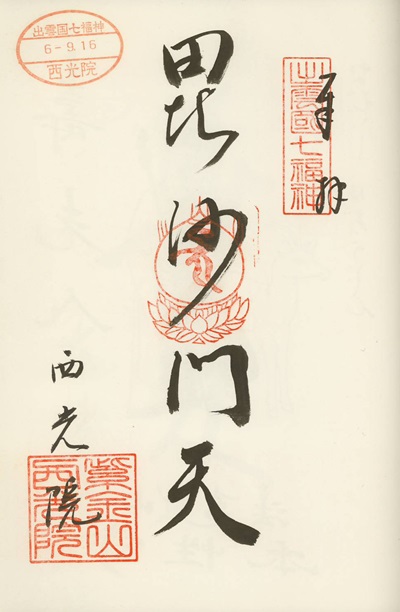 出雲国七福神
奉拝
毘沙門天
西光院
紫金山
西光院
出雲国七福神
6-9.16
西光院